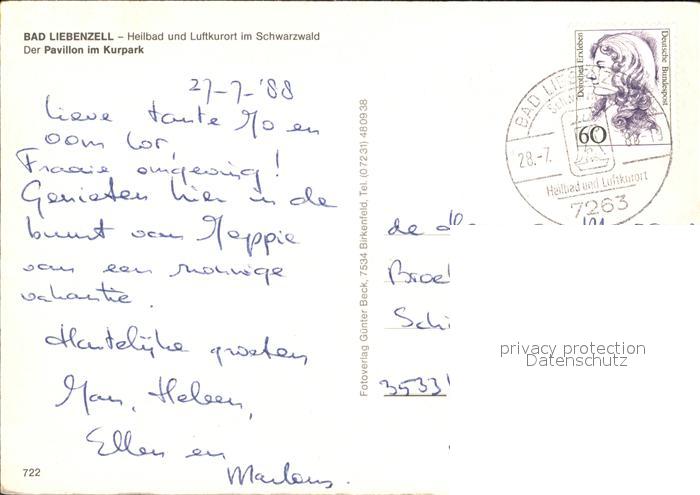 BAD LIEBENZELL – Heilbad und Luftkurort im Schwarzwald
Der Pavillon im Kurpark
27-7-'88
Lieve tante Jo en
oom Cor,
Fraaie omgeving!
Genieten hier in de
buurt van Jeppie
van een zonnige
vakantie.
Hartelijke groeten
Jan, Heleen,
Ellen en
Marloes.
722
Fotoverlag Günter Beck, 7534 Birkenfeld, Tel. (07231) 480938
Dorothea Erxleben
Deutsche Bundespost
60
BAD LIEBENZELL
28.-7. 88-
Heilbad und Luftkurort
7263
de
Broe
Schi
3533
privacy protection
Datenschutz